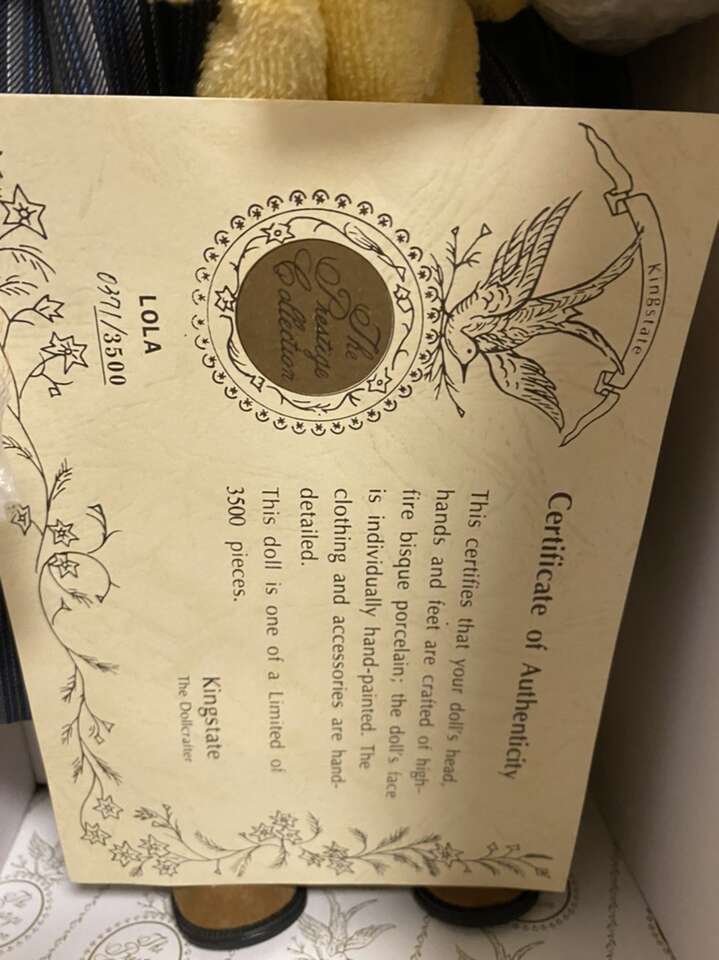 Kingstate
The
Prestige
Collection
LOLA
0371/3500
Certificate of Authenticity
This certifies that your doll's head,
hands and feet are crafted of high-
fire bisque porcelain; the doll's face
is individually hand-painted. The
clothing and accessories are hand-
detailed.
This doll is one of a Limited of
3500 pieces.
Kingstate
The Dollcrafter